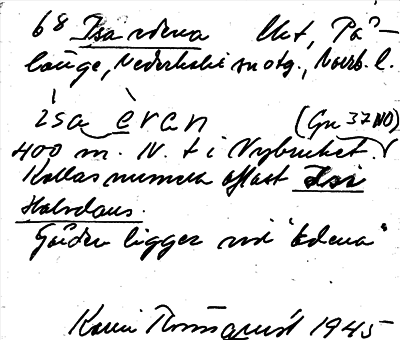 68 Isa edena Ukt, På-
länge, Nederkalix sn otg., Norrb. l.
isa èran (Gn 37 NO)
400 m. N. t i Nybruket.
Kallas numera oftast Isa
Halvdans.
Gården ligger vid "Edena"
Karin Rönnquist 1945